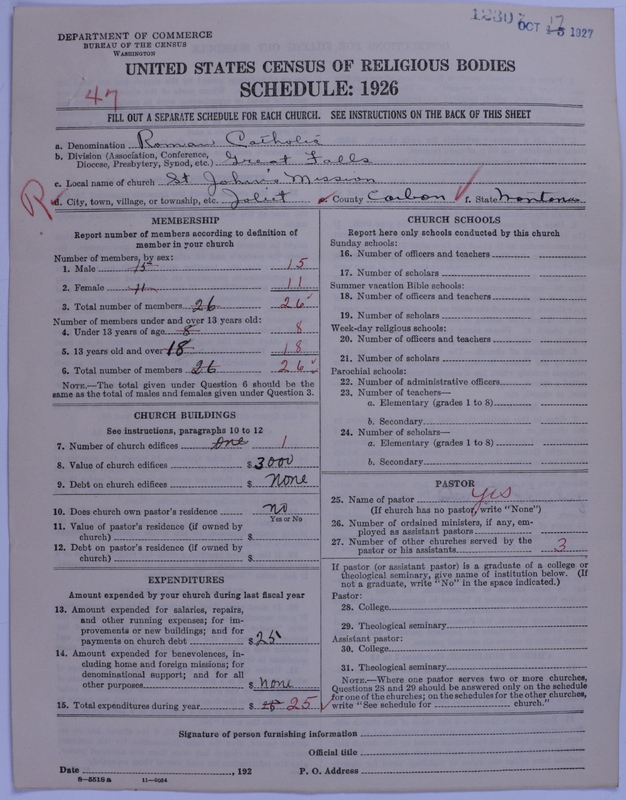 DEPARTMENT OF COMMERCE
BUREAU OF THE CENSUS
WASHINGTON
OCT 15 1927
17
UNITED STATES CENSUS OF RELIGIOUS BODIES
SCHEDULE: 1926
47
FILL OUT A SEPARATE SCHEDULE FOR EACH CHURCH. SEE INSTRUCTIONS ON THE BACK OF THIS SHEET
a. Denomination Roman Catholic
b. Division (Association, Conference, Diocese, Presbytery, Synod, etc.) Great Falls
c. Local name of church St John's Mission
R
d. City, town, village, or township, etc. Joliet e. County Carbon f. State Montana
MEMBERSHIP
Report number of members according to definition of
member in your church
Number of members, by sex:
1. Male 15 15
2. Female 11 11
3. Total number of members 26 26
Number of members under and over 13 years old:
4. Under 13 years of age 8 8
5. 13 years old and over 18 18
6. Total number of members 26 26
NOTE.—The total given under Question 6 should be
same as the total of males and females given under Question 3.
CHURCH BUILDINGS
See instructions, paragraphs 10 to 12
7. Number of church edifices one 1
8. Value of church edifices $ 3000
9. Debt on church edifices $ None
10. Does church own pastor's residence no
Yes or No
11. Value of pastor's residence (if owned by
church) $
12. Debt on pastor's residence (if owned by
church) $
EXPENDITURES
Amount expended by your church during last fiscal year
13. Amount expended for salaries, repairs,
and other running expenses; for im-
provements or new buildings; and for
payments on church debt $ 25
14. Amount expended for benevolences, in-
cluding home and foreign missions; for
denominational support; and for all
other purposes $ none
15. Total expenditures during year $ 25
CHURCH SCHOOLS
Report here only schools conducted by this church
Sunday schools:
16. Number of officers and teachers
17. Number of scholars
Summer vacation Bible schools:
18. Number of officers and teachers
19. Number of scholars
Week-day religious schools:
20. Number of officers and teachers
21. Number of scholars
Parochial schools:
22. Number of administrative officers
23. Number of teachers—
a. Elementary (grades 1 to 8)
b. Secondary
24. Number of scholars—
a. Elementary (grades 1 to 8)
b. Secondary
PASTOR
25. Name of pastor yes
(If church has no pastor, write "None")
26. Number of ordained ministers, if any, em-
ployed as assistant pastors
27. Number of other churches served by the
pastor or his assistants 3
If pastor (or assistant pastor) is a graduate of a college or
theological seminary, give name of institution below. (If
not a graduate, write "No" in the space indicated.)
Pastor:
28. College
29. Theological seminary
Assistant pastor:
30. College
31. Theological seminary
NOTE.—Where one pastor serves two or more churches,
Questions 28 and 29 should be answered only on the schedule
for one of the churches; on the schedules for the other churches,
write "See schedule for church."
Signature of person furnishing information
Official title
Date , 192 P. O. Address
8—5518a 11—9054